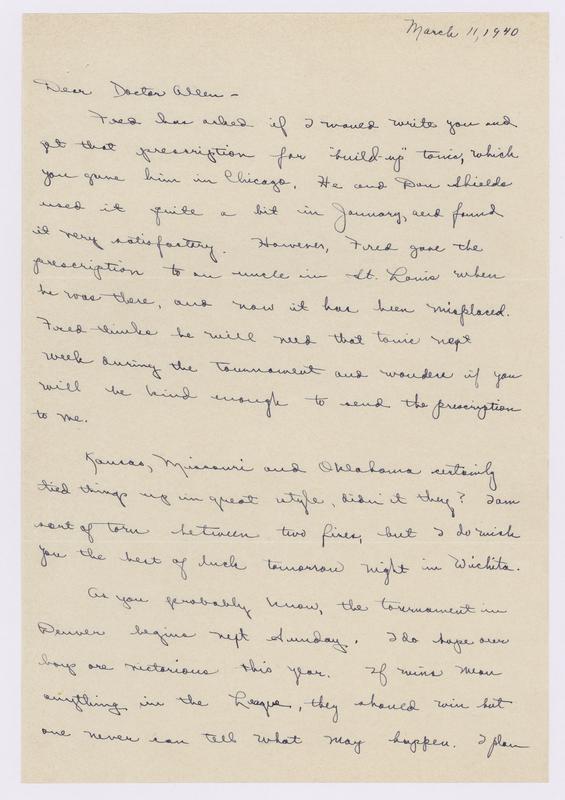 March 11, 1940
Dear Doctor Allen -
Fred has asked if I would write you and
get that prescription for "build-up" tonic, which
you gave him in Chicago. He and Don Shields
used it quite a bit in January, and found
it very satisfactory. However, Fred gave the
prescription to an uncle in St. Louis when
he was there, and now it has been misplaced.
Fred thinks he will need that tonic next
week during the tournament and wonders if you
will be kind enough to send the prescription
to me.
Kansas, Missouri and Oklahoma certainly
tied things up in great style, didn't they? I am
sort of torn between two fires, but I do wish
you the best of luck tomorrow night in Wichita.
As you probably know, the tournament in
Denver begins next Sunday. I do hope our
boys are victorious this year. If wins mean
anything in the League, they should win but
one never can tell what may happen. I plan